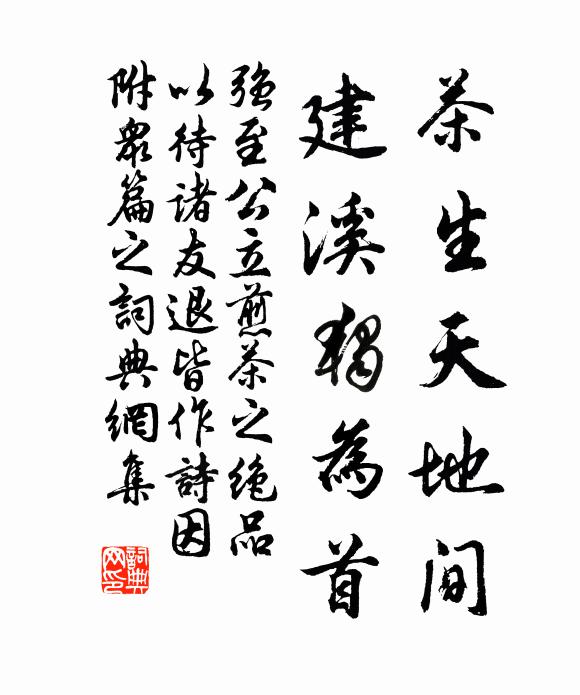 茶生天地间
建溪独為首
强至公立煎茶之绝品
以待诸友退皆作詩因
附衆篇之詞典網集
詞典网印